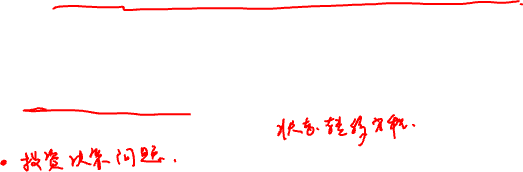 状态转移方程.
• 投资决策问题.